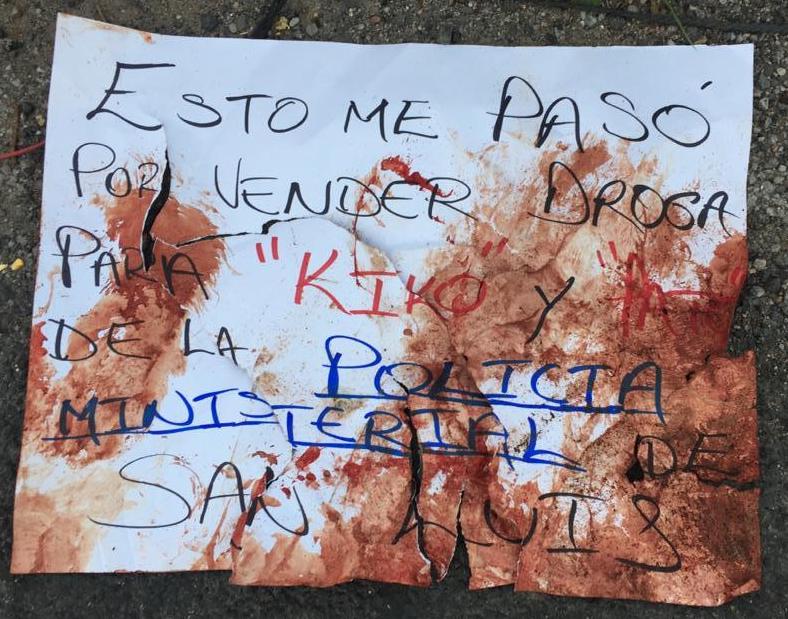 ESTO ME PASÓ
POR VENDER DROGA
PARA "KIKO" Y
DE LA POLICIA
MINISTERIAL DE
SAN LUIS